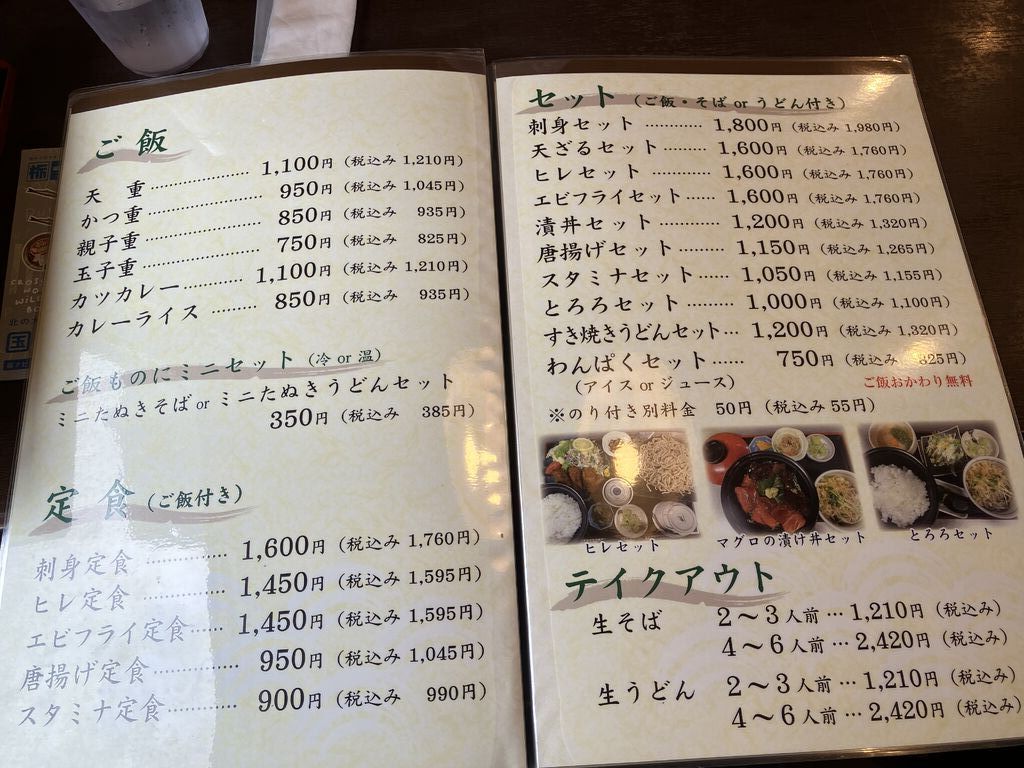 ご飯
天 重 ………………… 1,100円 (税込み 1,210円)
かつ重 ………………… 950円 (税込み 1,045円)
親子重 ………………… 850円 (税込み 935円)
玉子重 ………………… 750円 (税込み 825円)
カツカレー …………… 1,100円 (税込み 1,210円)
カレーライス ……… 850円 (税込み 935円)
ご飯ものにミニセット (冷 or 温)
ミニたぬきそば or ミニたぬきうどんセット
350円 (税込み 385円)
定食 (ご飯付き)
刺身定食 …………… 1,600円 (税込み 1,760円)
ヒレ定食 …………… 1,450円 (税込み 1,595円)
エビフライ定食…… 1,450円 (税込み 1,595円)
唐揚げ定食 ………… 950円 (税込み 1,045円)
スタミナ定食 ……… 900円 (税込み 990円)
セット (ご飯・そば or うどん付き)
刺身セット ………… 1,800円 (税込み 1,980円)
天ざるセット ……… 1,600円 (税込み 1,760円)
ヒレセット ………… 1,600円 (税込み 1,760円)
エビフライセット…… 1,600円 (税込み 1,760円)
漬丼セット ………… 1,200円 (税込み 1,320円)
唐揚げセット ……… 1,150円 (税込み 1,265円)
スタミナセット …… 1,050円 (税込み 1,155円)
とろろセット ……… 1,000円 (税込み 1,100円)
すき焼きうどんセット… 1,200円 (税込み 1,320円)
わんぱくセット …… 750円 (税込み 825円)
(アイス or ジュース) ご飯おかわり無料
※のり付き別料金 50円 (税込み 55円)
ヒレセット マグロの漬け丼セット とろろセット
テイクアウト
生そば 2～3人前 … 1,210円 (税込み)
4～6人前 … 2,420円 (税込み)
生うどん 2～3人前 … 1,210円 (税込み)
4～6人前 … 2,420円 (税込み)